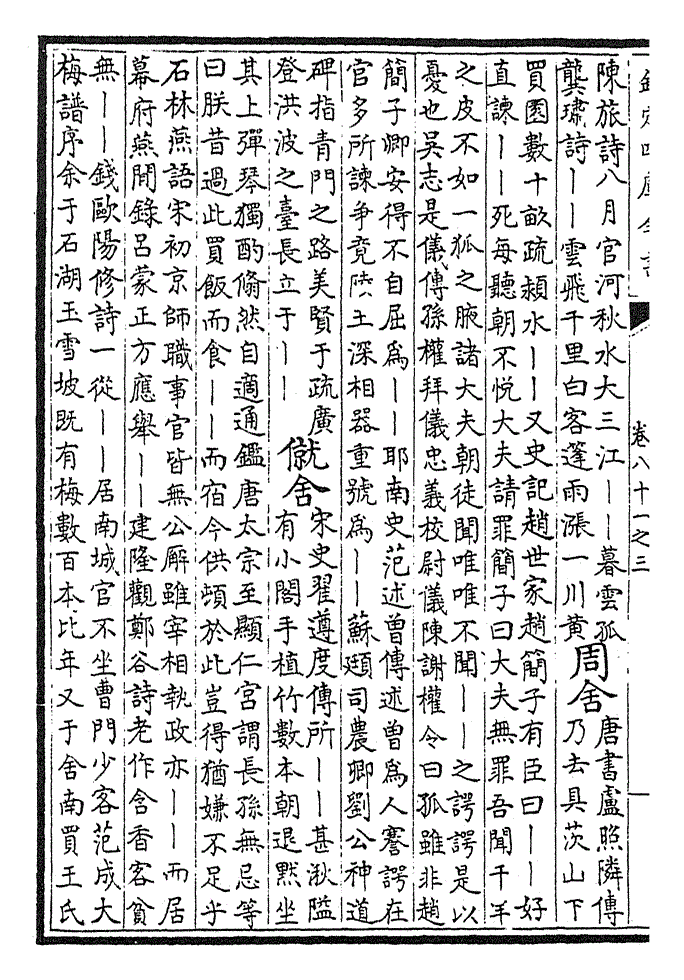 欽定四庫全書
卷八十一之三
陳旅詩八月官河秋水大三江丨丨暮雲孤
龔璛詩丨丨雲飛千里白客蓬雨漲一川黄
周舍
唐書盧照隣傳
乃去具茨山下
買園數十畝疏潁水丨丨又史記趙世家趙簡子有臣曰丨丨好
直諫丨丨死每聽朝不悦大夫請罪簡子曰大夫無罪吾聞千羊
之皮不如一狐之腋諸大夫朝徒聞唯唯不聞丨丨之諤諤是以
憂也吳志是儀傳孫權拜儀忠義校尉儀陳謝權令曰孤雖非趙
簡子卿安得不自屈爲丨丨耶南史范述曾傳述曾爲人謇諤在
官多所諫争竟陵王深相器重號爲丨丨蘇頲司農卿劉公神道
碑指青門之路美賢于疏廣
登洪波之臺長立于丨丨
僦舍
宋史翟遵度傳所丨丨甚湫隘
有小閣手植竹數本朝退黙坐
其上彈琴獨酌翛然自適通鑑唐太宗至顯仁宫謂長孫無忌等
曰朕昔過此買飯而食丨丨而宿今供頓於此豈得猶嫌不足乎
石林燕語宋初京師職事官皆無公廨雖宰相執政亦丨丨而居
幕府燕閒錄吕蒙正方應舉丨丨建隆觀鄭谷詩老作含香客貧
無丨丨錢歐陽修詩一從丨丨居南城官不坐曹門少客范成大
梅譜序余于石湖玉雪坡既有梅數百本比年又于舍南買王氏